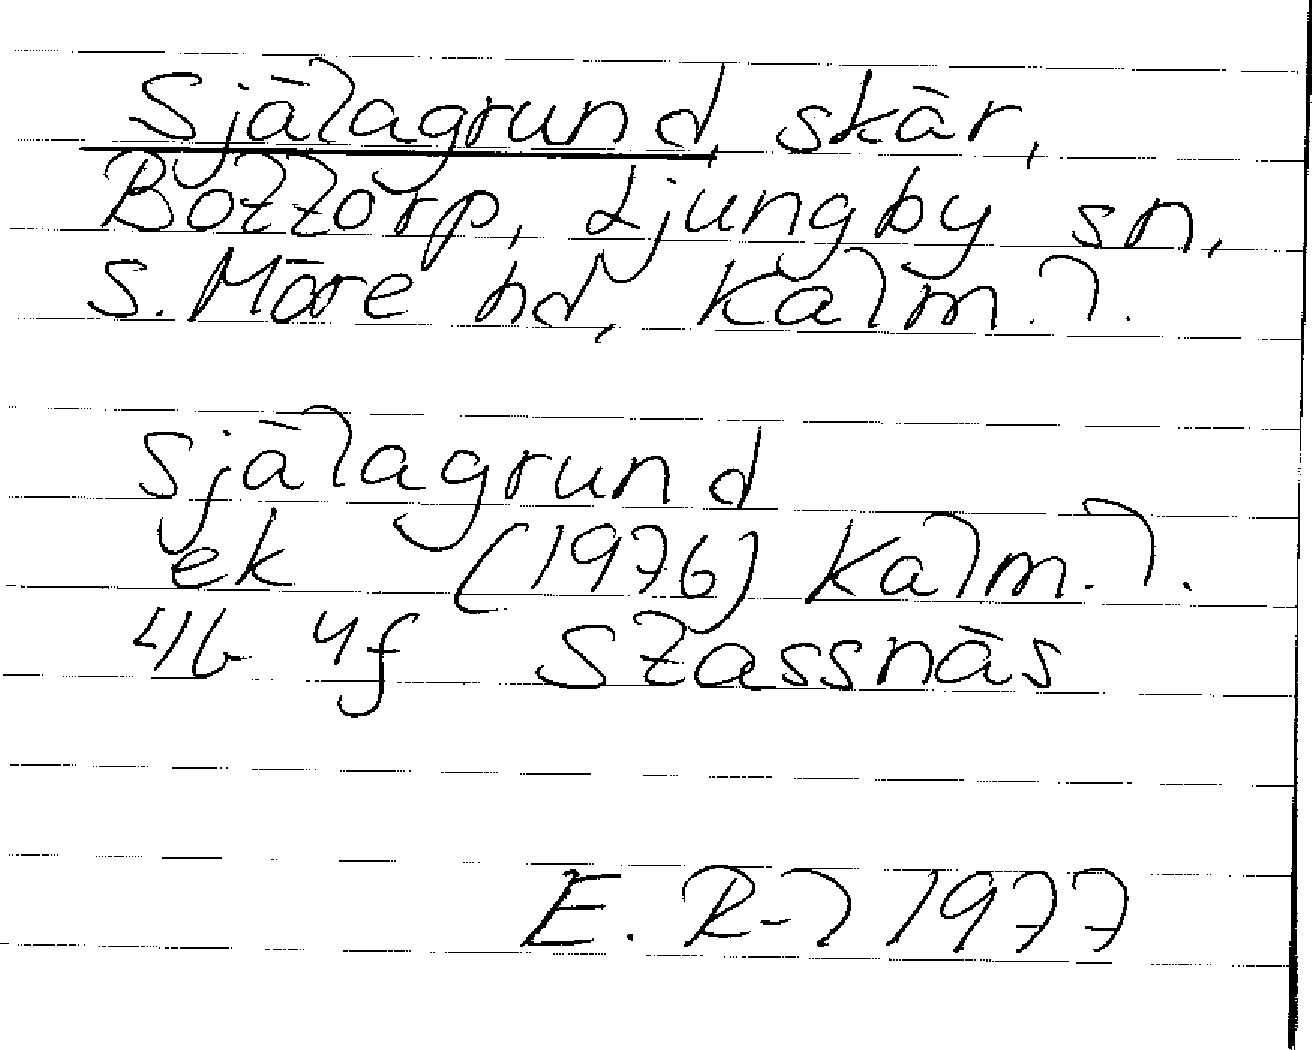 Själagrund, skär,
Bottorp, Ljungby sn,
S. Möre hd, Kalm. l.
Själagrund
ek (1976) Kalm. l.
4G 4f Stassnäs
E. R-l 1977